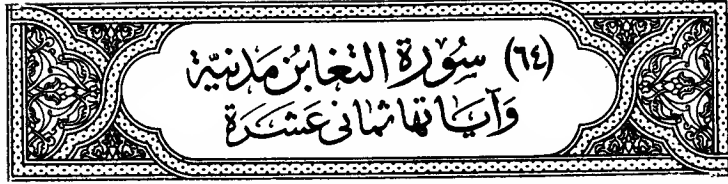 (٦٤) سُورَة التغَابُن مَدَنيَّة
وَآيَاتهَا ثمَانى عَشَرَة